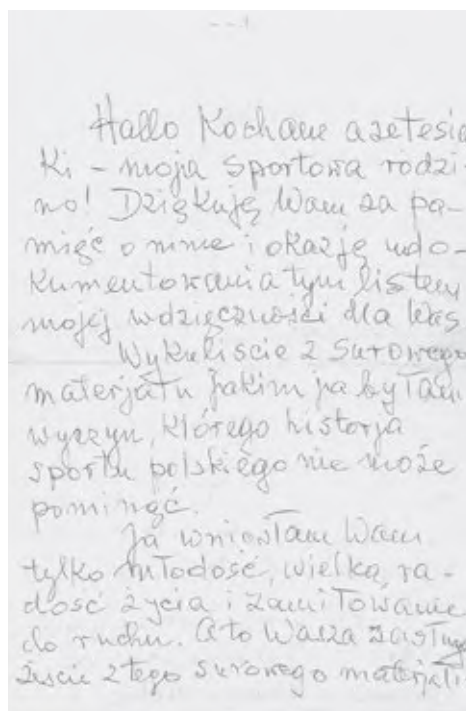 Hallo Kochane azetesia
ki - moja sportowa rodzi-
no! Dziękuję Wam za pa-
mięć o mnie i okazję udo-
kumentowania tym listem
mojej wdzięczności dla Was
Wykuliście z surowego
materjału jakim ja byłam
wyczyn, którego historja
sportu polskiego nie może
pominąć.
Ja wniosłam Wam
tylko młodość, wielką ra-
dość życia i zamiłowanie
do ruchu. A to Wasza zasługa
żeście z tego surowego materjału